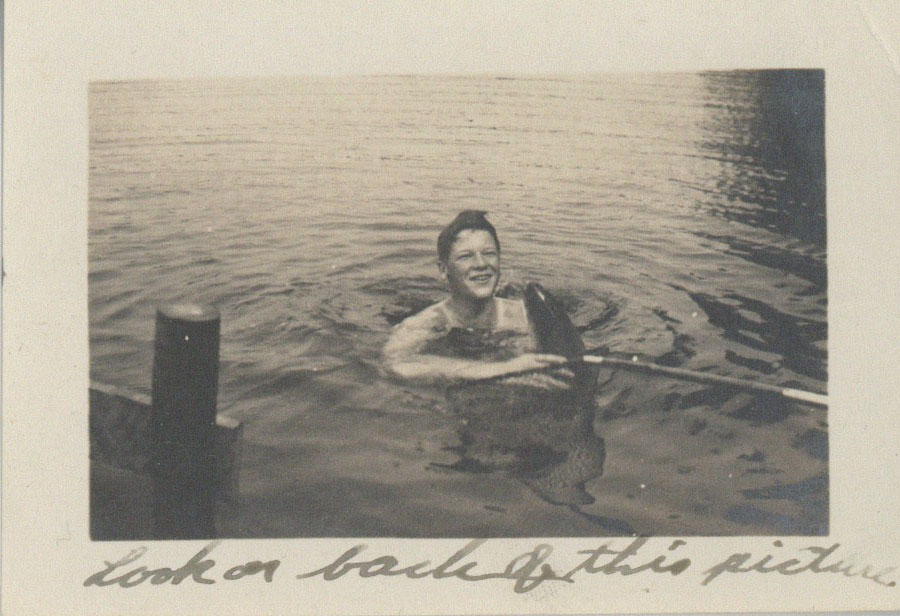 Look on back of this picture.